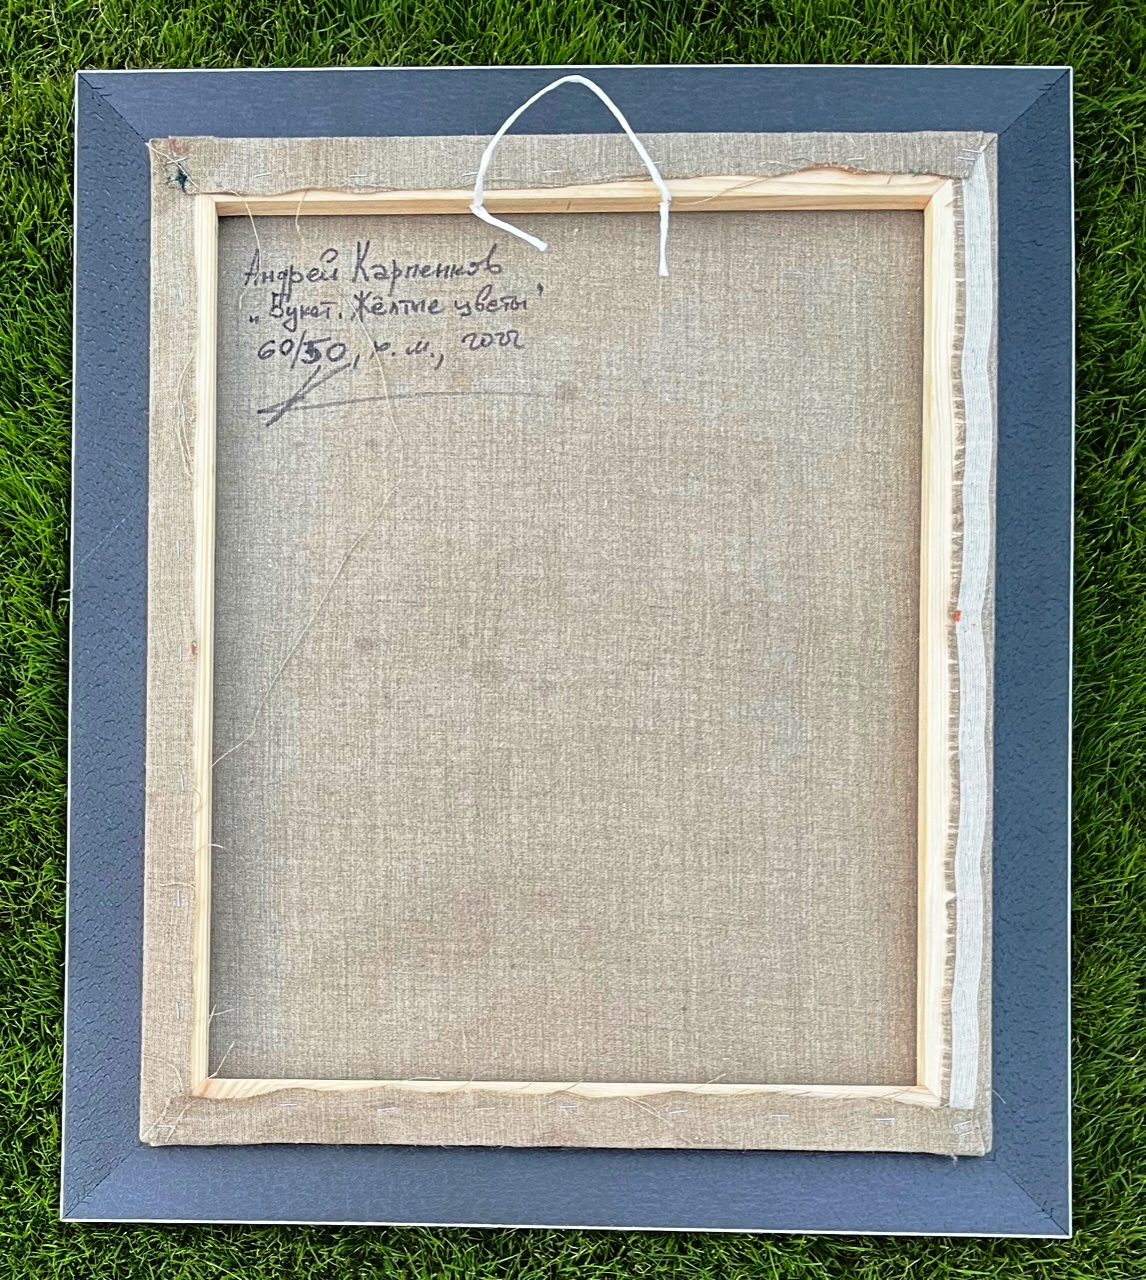 Андрей Карпенков
„Букет. Жёлтые цветы"
60/50, х.м., 2022